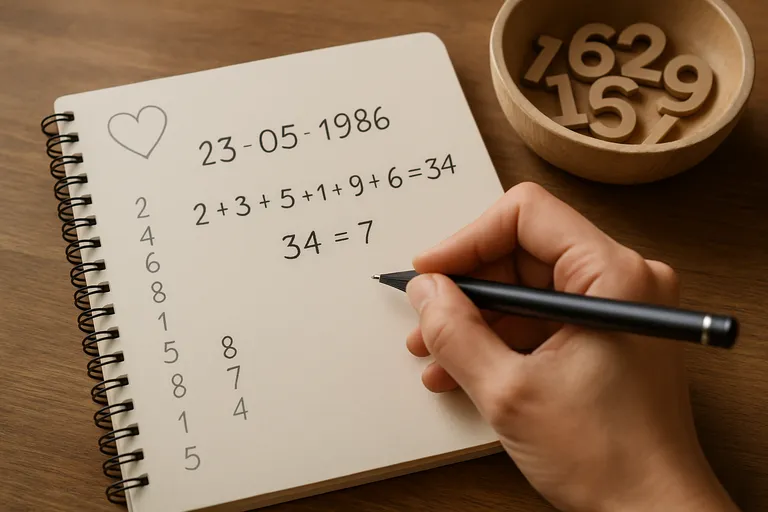 23-05-1986
2+3+5+1+9+6=34
34=7
2
4
6
8
1
5
8
1
5
8
7
4
1629
1591